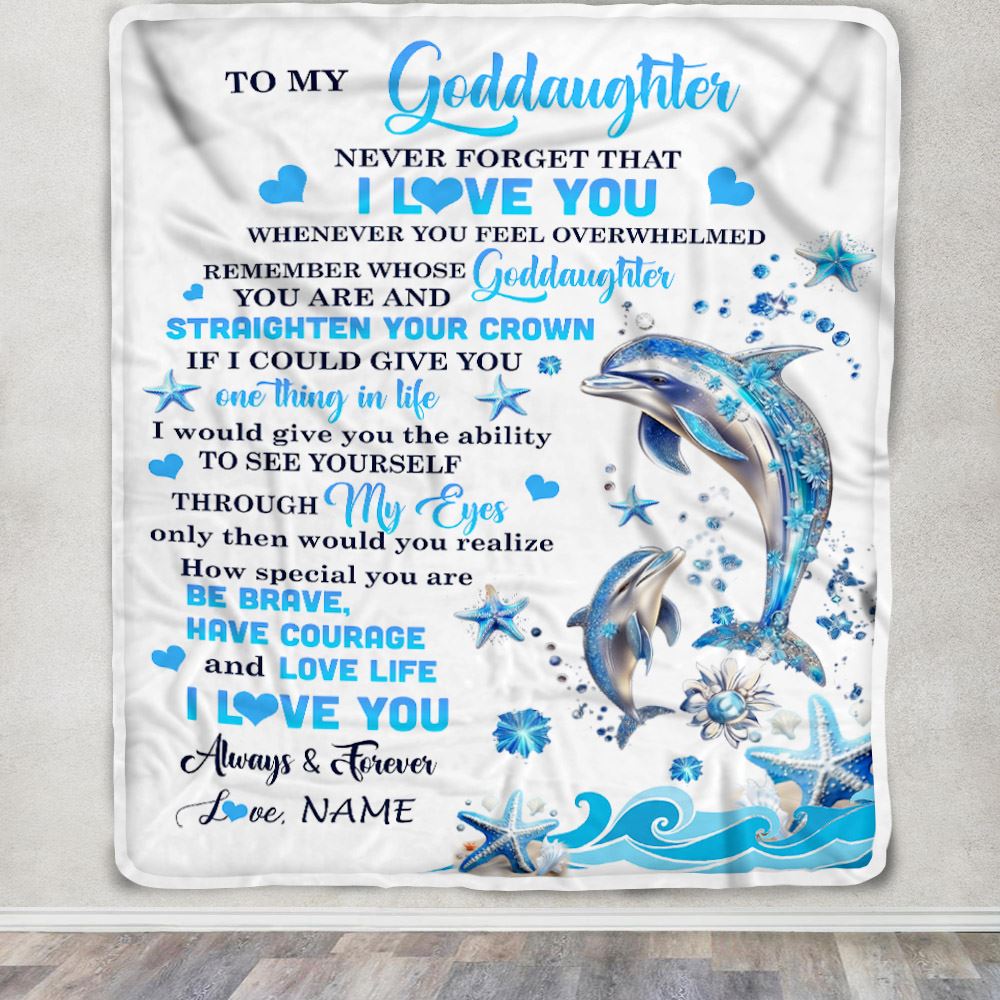 TO MY Goddaughter
NEVER FORGET THAT
I LOVE YOU
WHENEVER YOU FEEL OVERWHELMED
REMEMBER WHOSE Goddaughter
YOU ARE AND
STRAIGHTEN YOUR CROWN
IF I COULD GIVE YOU
one thing in life
I would give you the ability
TO SEE YOURSELF
THROUGH My Eyes
only then would you realize
How special you are
BE BRAVE,
HAVE COURAGE
and LOVE LIFE
I LOVE YOU
Always & Forever
Love, NAME